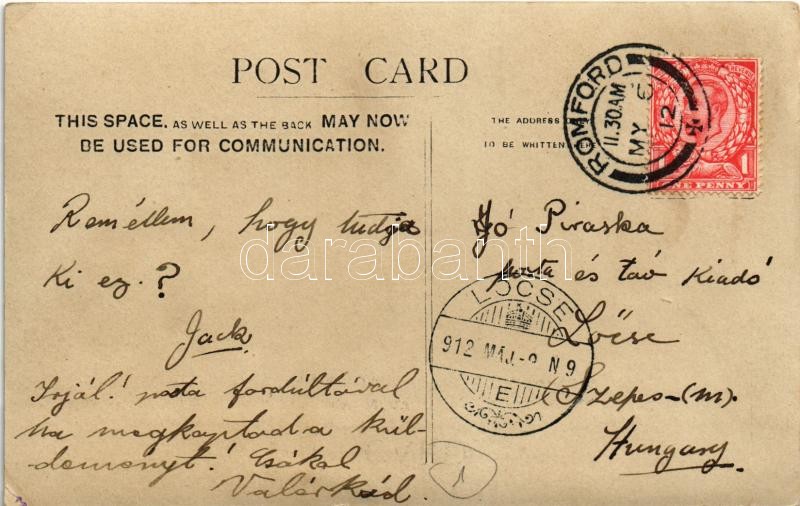 POST CARD
THIS SPACE, AS WELL AS THE BACK MAY NOW
BE USED FOR COMMUNICATION.
THE ADDRESS
TO BE WRITTEN HERE
ROMFORD
11.30AM
MY 6
12
ONE PENNY
1
Remélem, hogy tudja
Ki ez.?
Jack
Irjál! posta fordúltával
ha megkaptad a kül-
deményt! Csókol
Jó Piroska
posta és táv Kiadó
Lőcse
Szepes-(m).
Hungary.
LŐCSE
912 MÁJ.-9 N9
E
1
darabanth